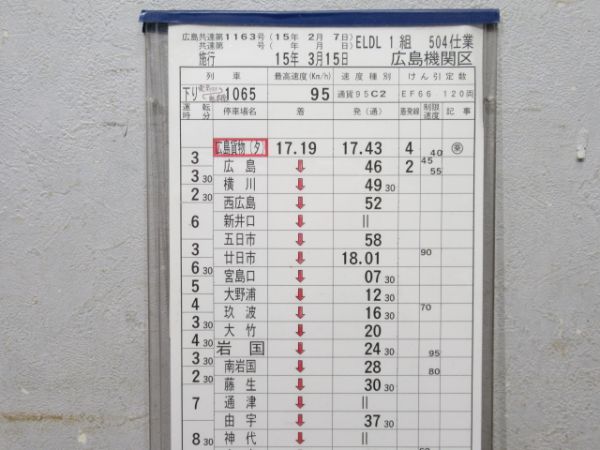 広島共達第1163号(15年 2月 7日) ELDL 1 組 504仕業
共達第 号( 年 月 日)
施行 15年 3月15日 広島機関区
列 車 最高速度(Km/h) 速度種別 けん引定数
下り 1065 95 通貨95C2 EF66 120両
運転時分 停車場名 着 発(通) 着発線 制限速度 記 事
広島貨物(タ) 17.19 17.43 4 40
3
広 島 ↓ 46 2 45 55
3 30
横 川 ↓ 49 30
2 30
西広島 ↓ 52
6
新井口 ↓ ||
五日市 ↓ 58
3
廿日市 ↓ 18.01 90
6 30
宮島口 ↓ 07 30
5
大野浦 ↓ 12 30
4
玖 波 ↓ 16 30 70
3 30
大 竹 ↓ 20
4 30
岩 国 ↓ 24 30 95
3 30
南岩国 ↓ 28 80
2 30
藤 生 ↓ 30 30
7
通 津 ↓ ||
由 宇 ↓ 37 30
8 30
神 代 ↓ ||